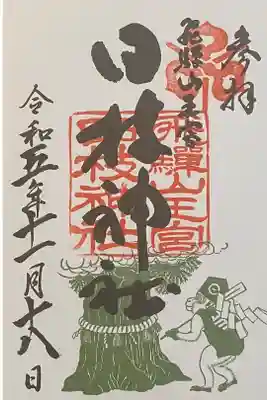 奉拝
飛騨山王宮
日枝神社
飛驒山王宮
日枝神社
令和五年十一月十八日